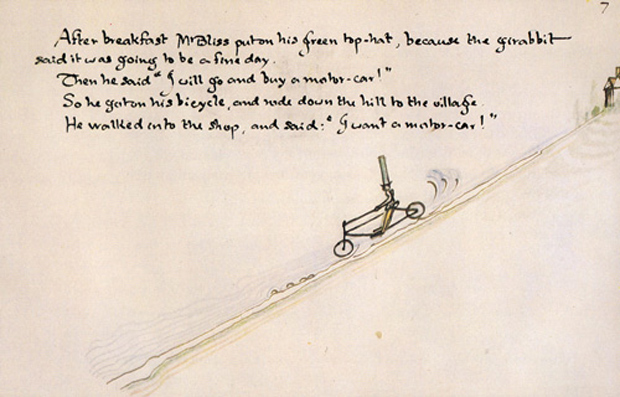 7
After breakfast Mr Bliss put on his green top-hat, because the girabbit
said it was going to be a fine day.
Then he said "I will go and buy a motor-car!"
So he got on his bicycle, and rode down the hill to the village.
He walked into the shop, and said: "I want a motor-car!"